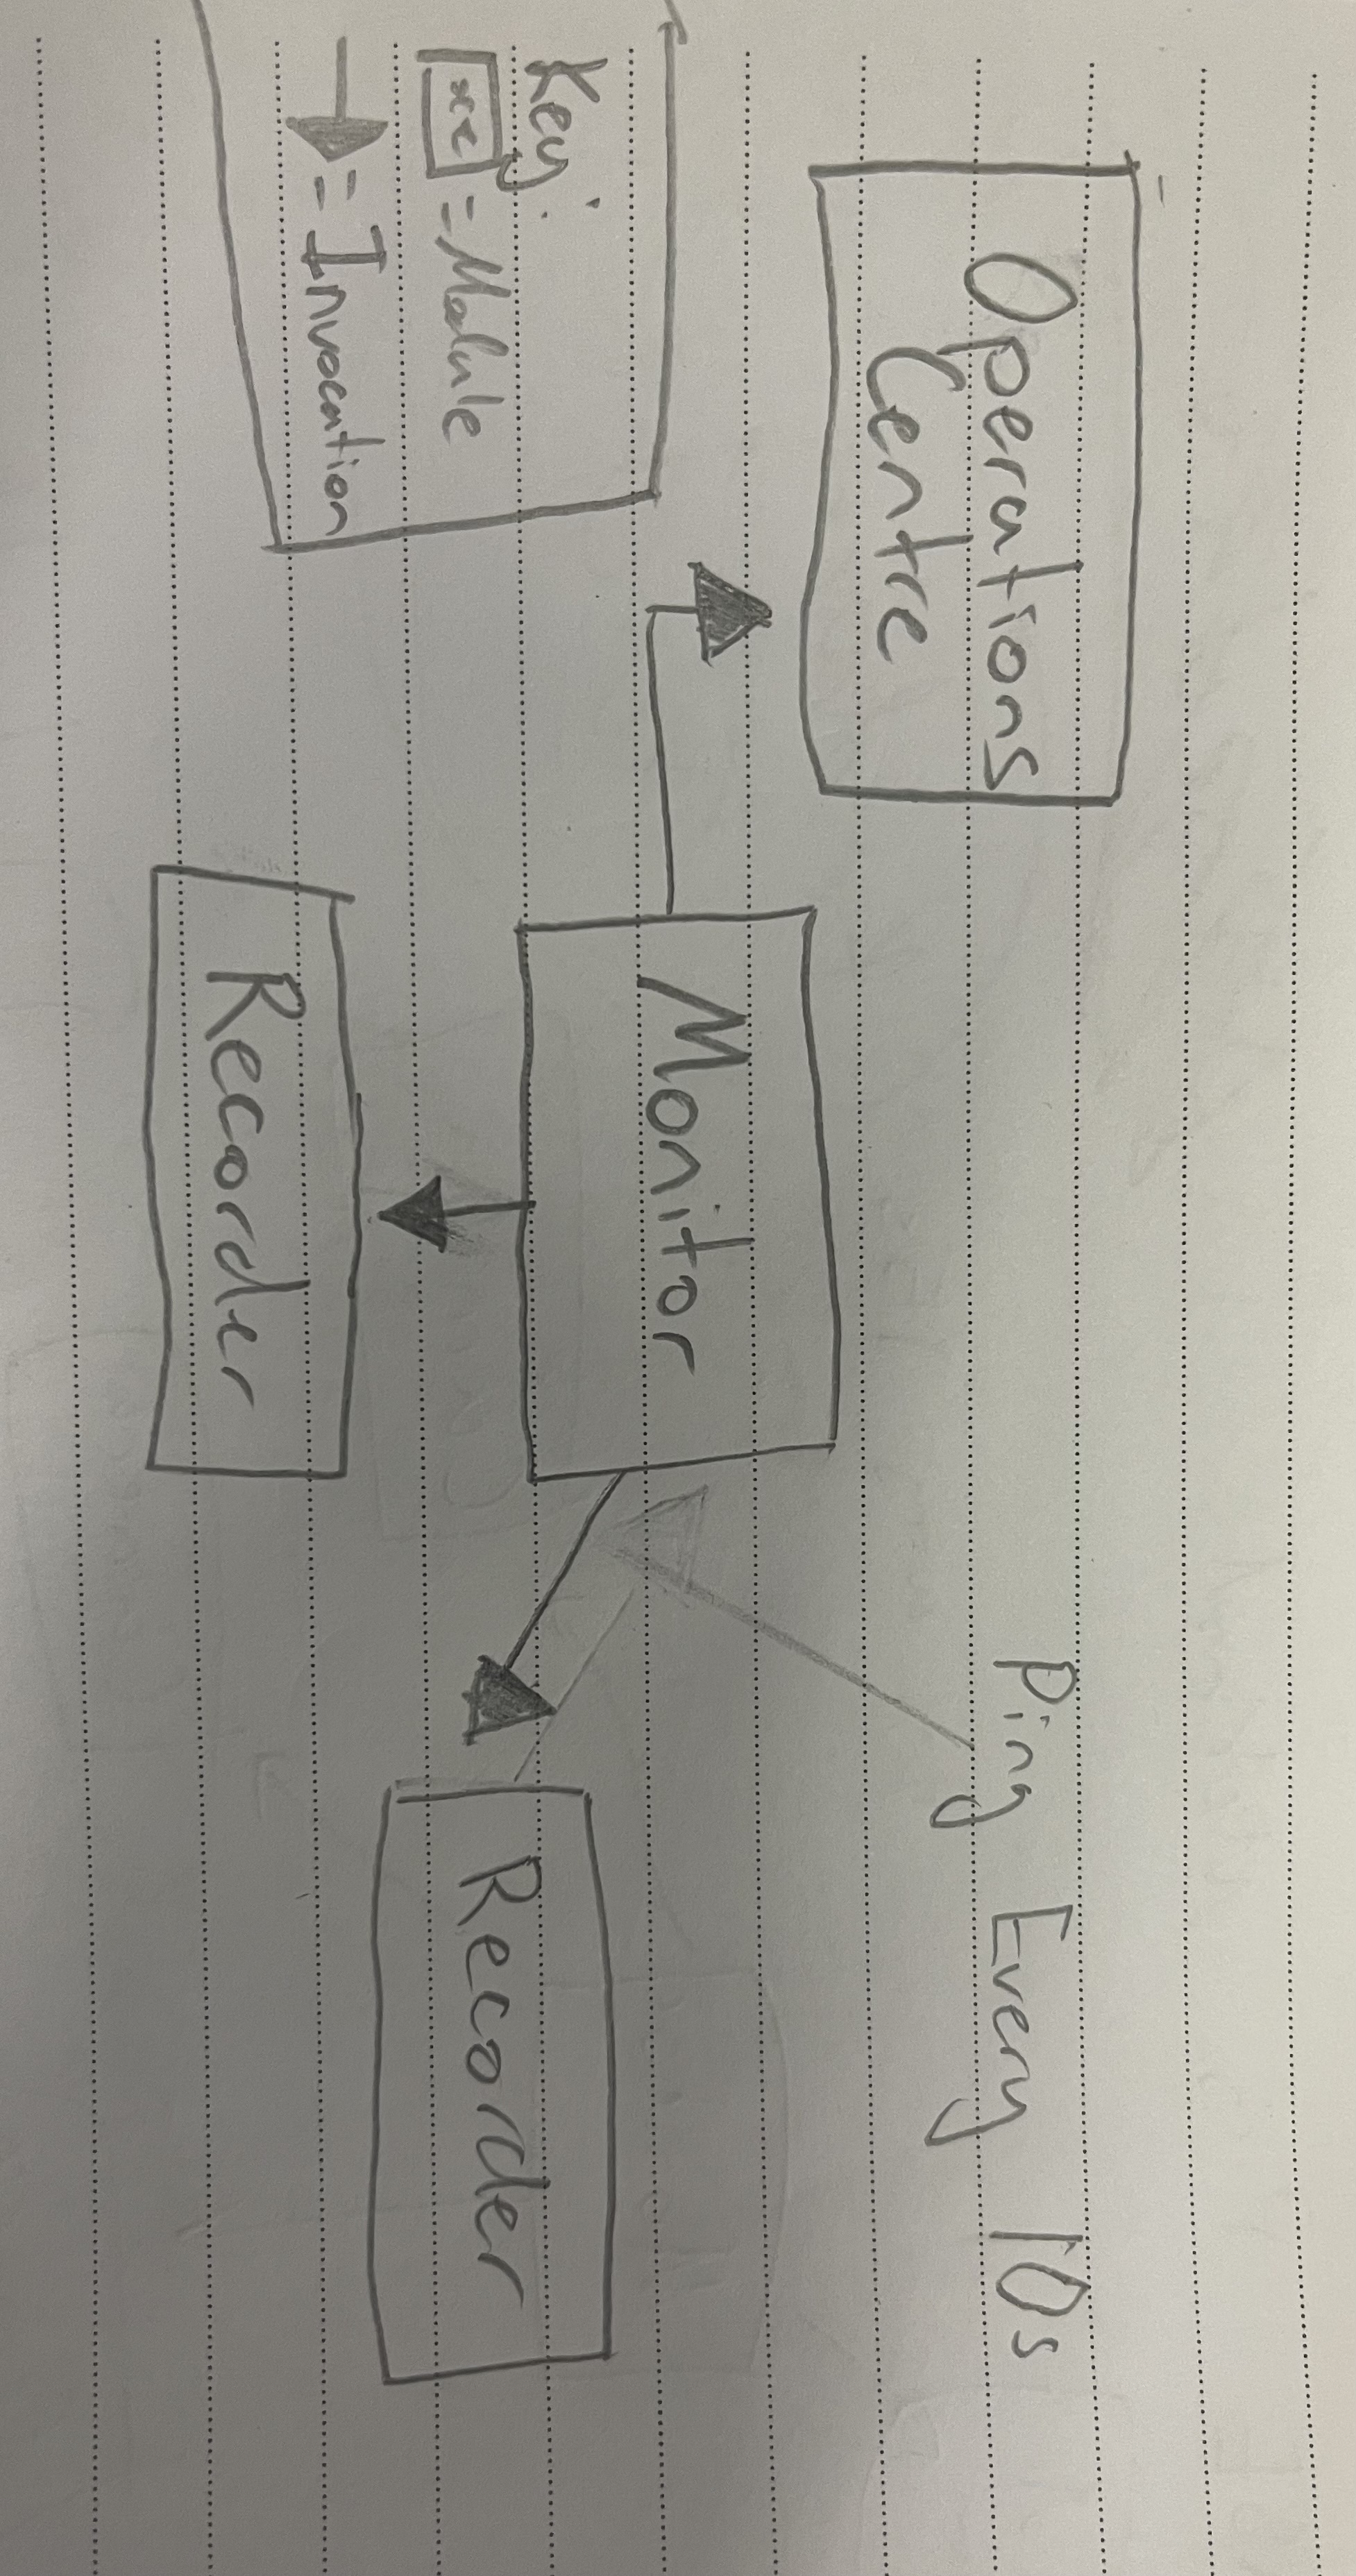 Operations
Centre
Ping Every 10s
Monitor
Recorder
Recorder
Key:
xx = Module
= Invocation